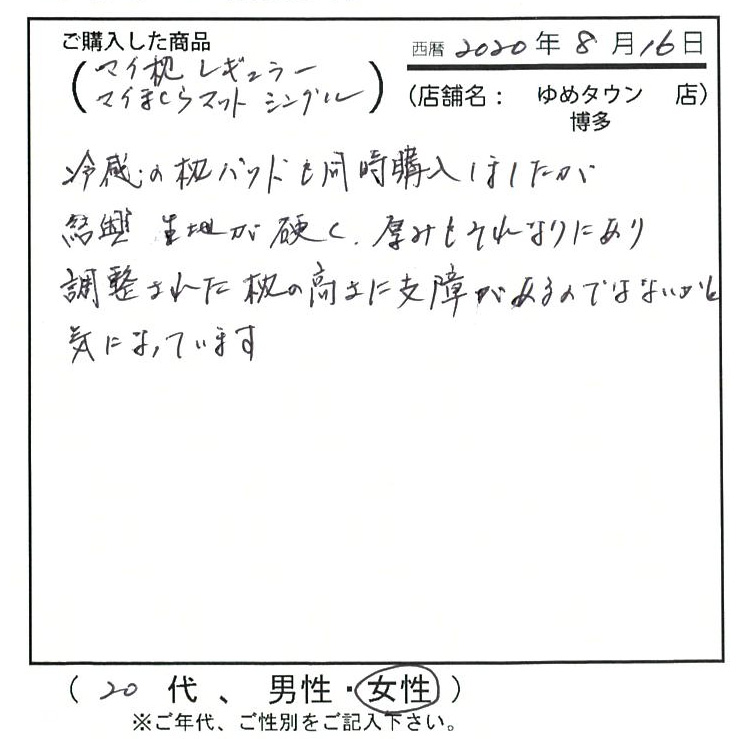 ご購入した商品
西暦 2020年 8月16日
(マイ枕 レギュラー
マイまくらマット シングル)
(店舗名： ゆめタウン 店)
博多
冷感の枕パッドも同時購入しましたが
結構 生地が硬く、厚みもそれなりにあり
調整された枕の高さに支障があるのではないかと
気になっています
( 20 代 、 男性・女性 )
※ご年代、ご性別をご記入下さい。